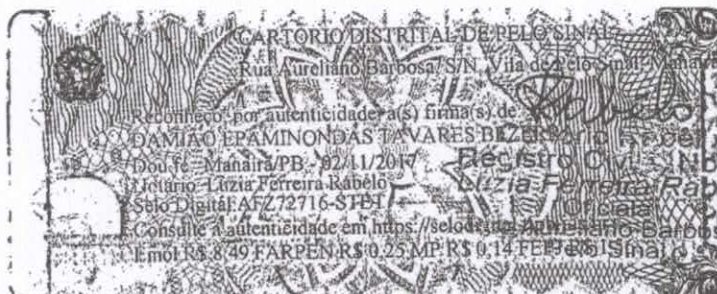 CARTORIO DISTRITAL DE PELO SINAL
Rua Aureliano Barbosa, S/N, Vila de Pelo Sinal-Manaíra
Reconheço, por autenticidade, a(s) firma(s) de
DAMIAO EPAMINONDAS TAVARES BEZERRA
Dou fé. Manaíra/PB 02/11/2017
Notário Luzia Ferreira Rabelo
Selo Digital: AFZ72716-
Consulte a autenticidade em https://selodigital
Emol R$ 8,49 FARPEN R$ 0,25 MP R$ 0,14 FEPJ R$
Rabelo
Registro Civil
Luzia Ferreira Rab
Oficiala
Barbos
Pelo Sinal